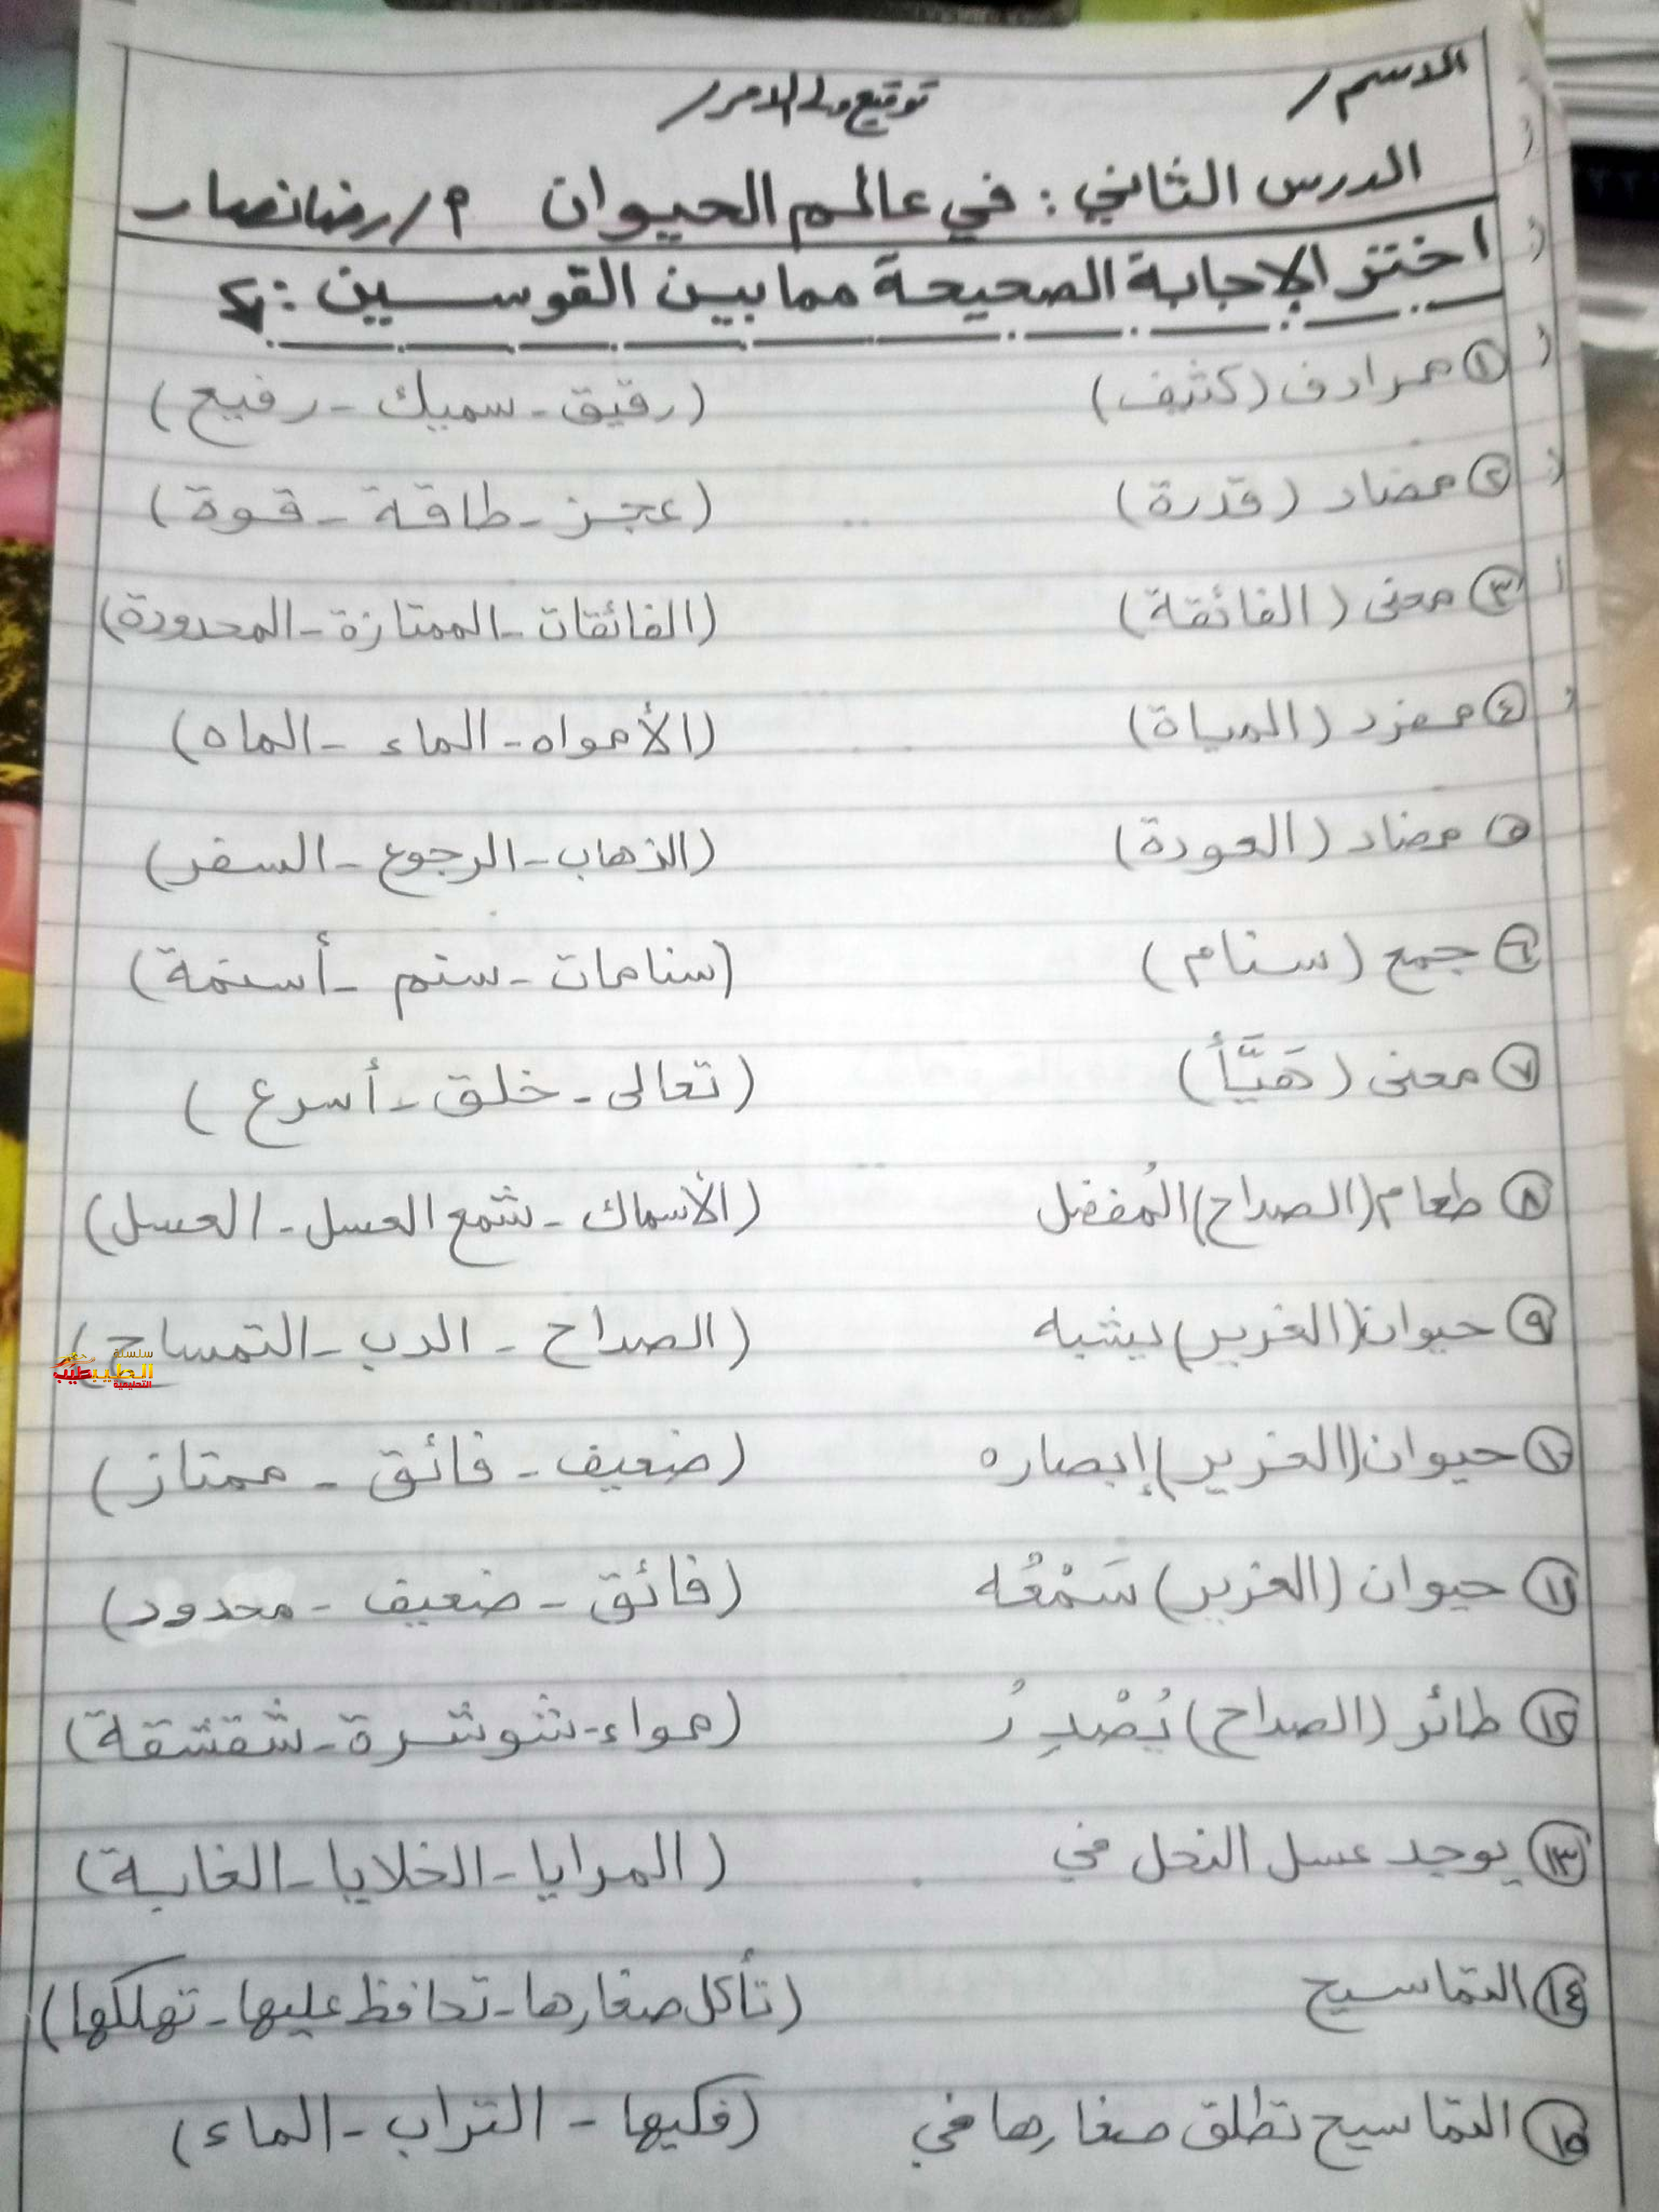 الاسم/ توقيع ولى الامر/
الدرس الثاني: في عالم الحيوان م/رضا نصار
اختر الإجابة الصحيحة مما بين القوسين:-
١ مرادف (كثيف) (رقيق - سميك - رفيع)
٢ مضاد (قدرة) (عجز - طاقة - قوة)
٣ معنى (الفائقة) (الفائقات - الممتازة - المحدودة)
٤ مفرد (المياة) (الأمواه - الماء - الماه)
٥ مضاد (العودة) (الذهاب - الرجوع - السفر)
٦ جمع (سنام) (سنامات - سنم - أسنمة)
٧ معنى (هَيَّأَ) (تعالى - خلق - أسرع)
٨ طعام (الصداح) المُفضل (الأسماك - شمع العسل - العسل)
٩ حيوان (الغرير) يشبه (الصداح - الدب - التمساح)
١٠ حيوان (الغرير) إبصاره (ضعيف - فائق - ممتاز)
١١ حيوان (الغرير) سَمْعُه (فائق - ضعيف - محدود)
١٢ طائر (الصداح) يُصْدِرُ (مواء - شوشرة - شقشقة)
١٣ يوجد عسل النحل في (المرايا - الخلايا - الغابة)
١٤ التماسيح (تأكل صغارها - تحافظ عليها - تهلكها)
١٥ التماسيح تطلق صغارها في (فكيها - التراب - الماء)
سلسلة
الطيب
التعليمية